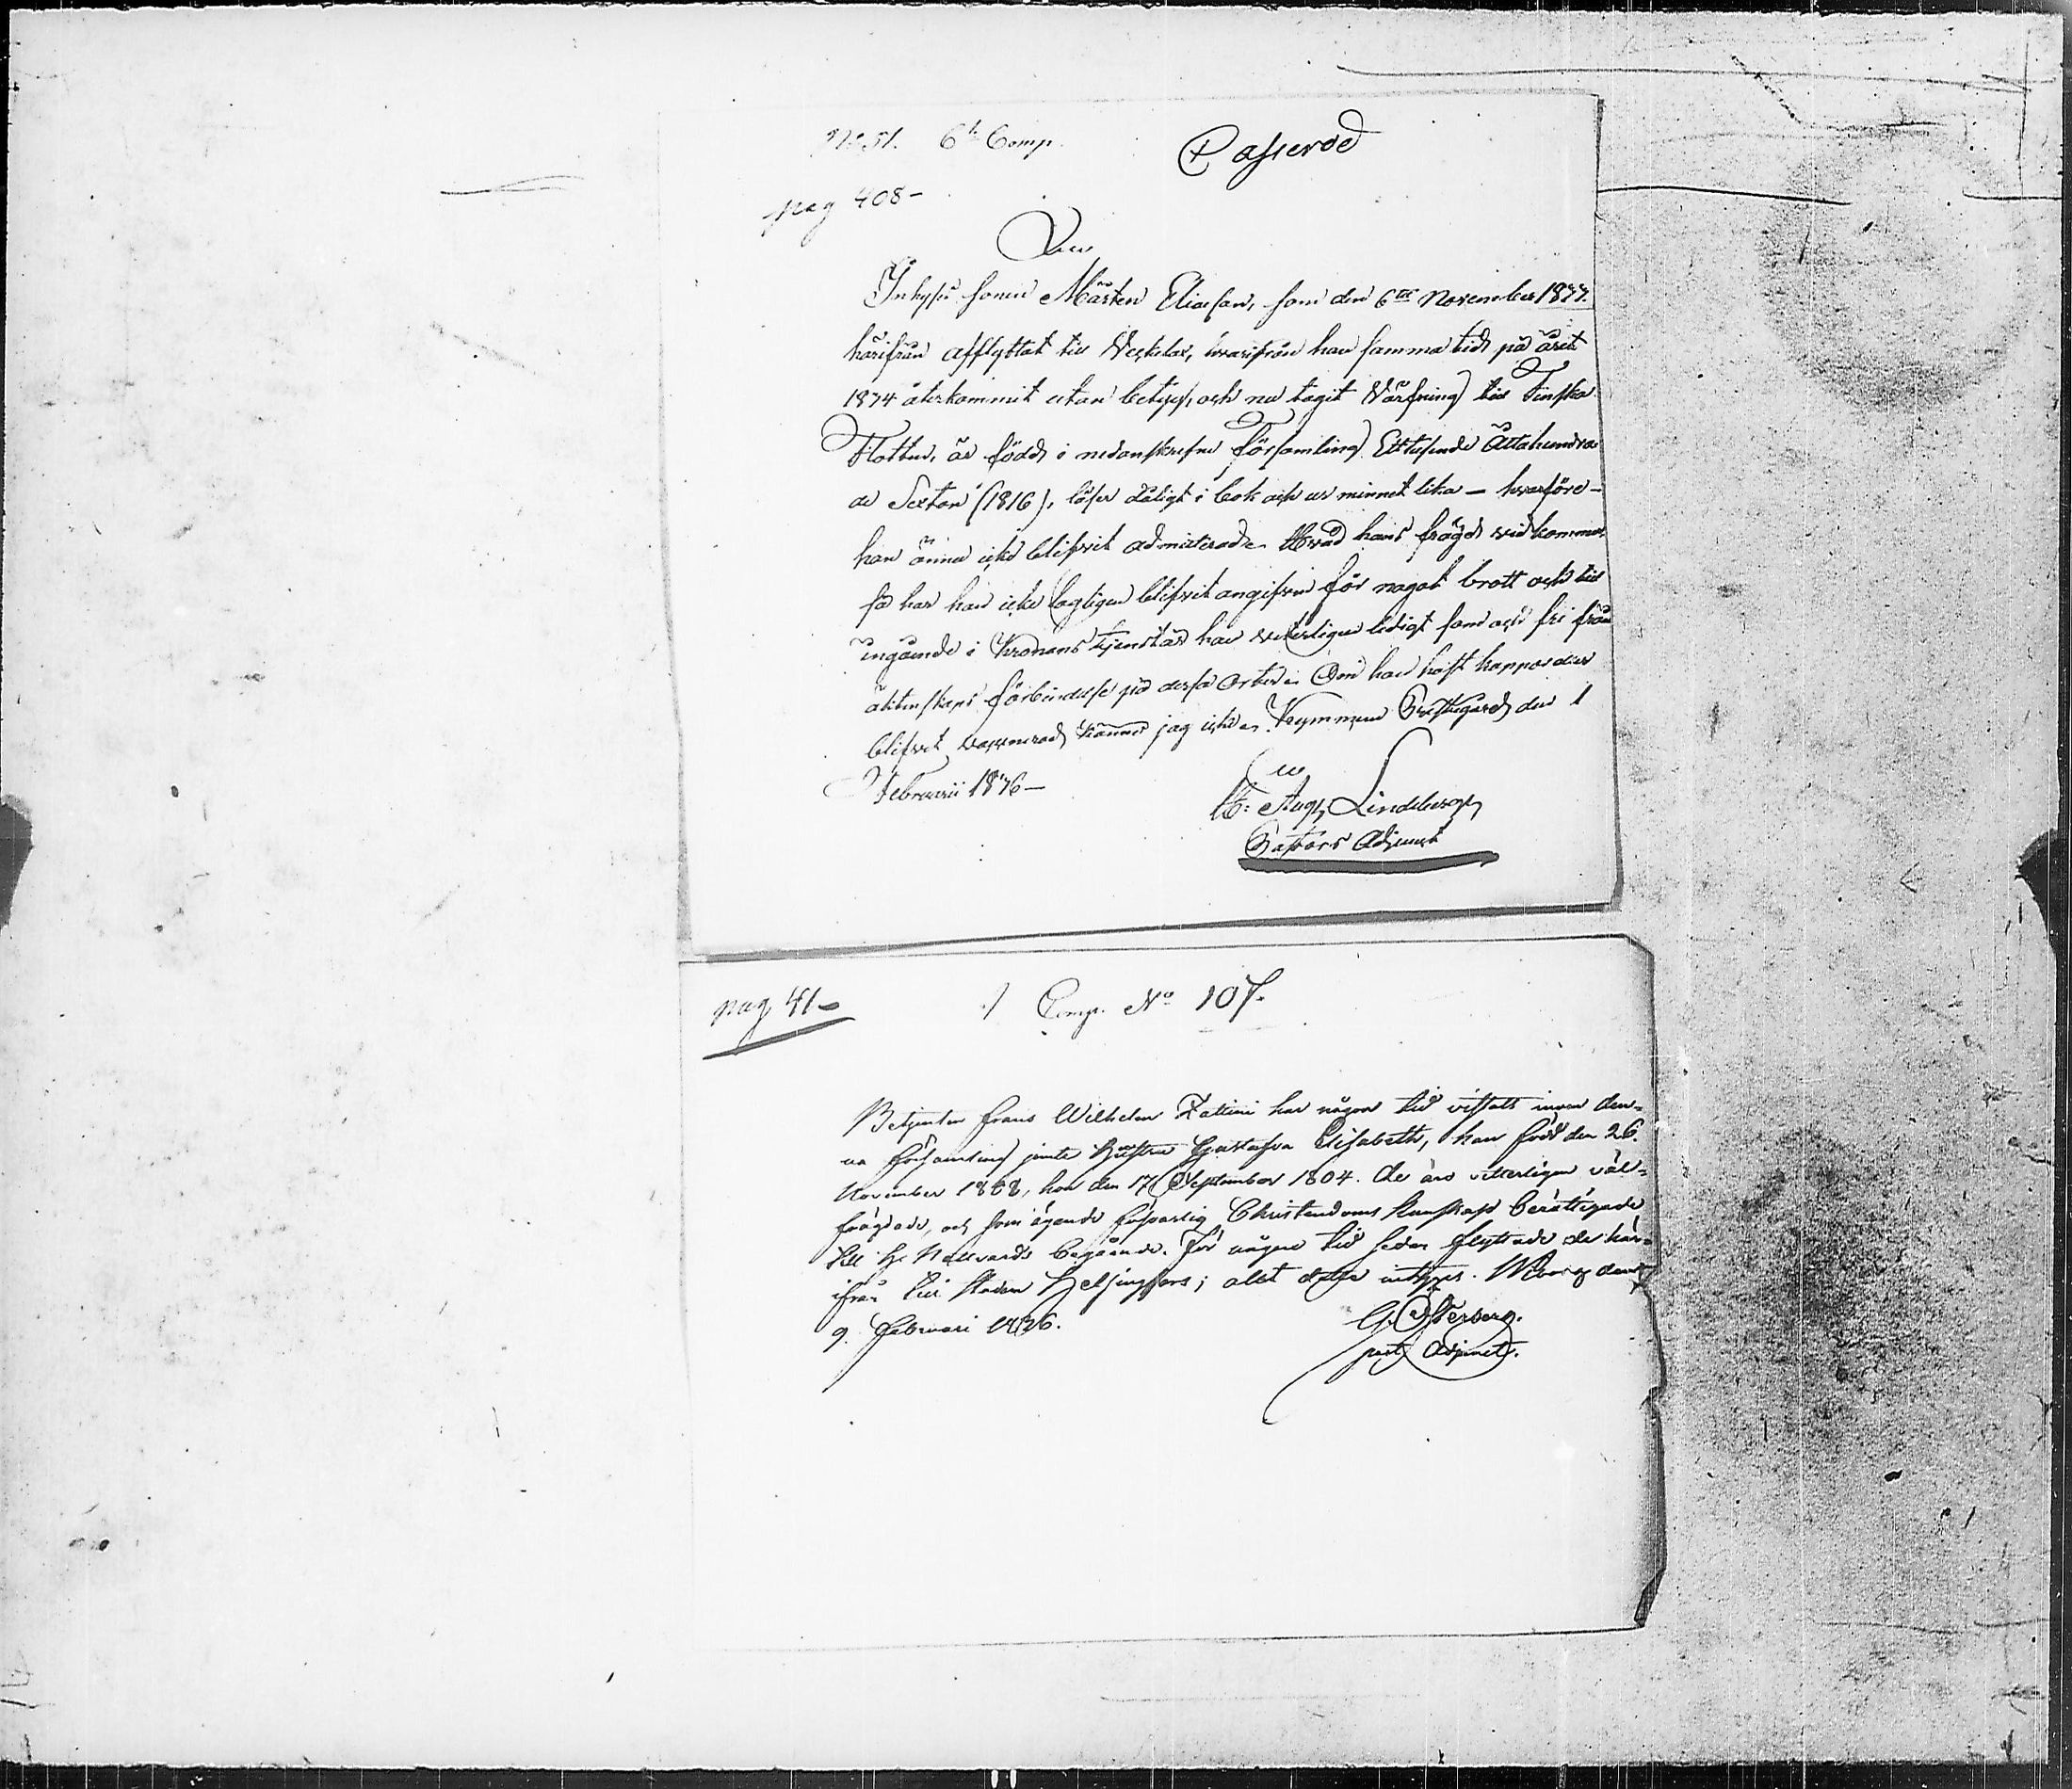 No 51. 6te Comp.
Passerad
pag 408-
Inhyses sonen Mårten Eliasson, som den 6te November 1833
härifrån afflyttat till Veckelax, hvarifrån han samma tid på året
1834 återkommit utan betyg, och nu tagit Värfning till Finska
Flottan, är född i nedanskrefne Församling Ettusende Åttahundra
de Sexton (1816), läser dåligt i bok och ur minnet lika - hvarföre -
han ännu icke blifvit admitterad. Hvad hans frägd vidkommer
så har han icke lagligen blifvit angifven för något brott och till
ingående i Kronans tjenst är han veterligen ledigt som och fri från
äktenskaps förbindelse på dessa orter. Om han haft koppor eller
blifvit vaccinerad känner jag icke. Kymmene Prästegård den 1
Februarii 1836-
Aug. Lindeberg
Pastors Adjunct
pag 41-
1 Comp. No 107.
Betjenten Frans Wilhelm har någon tid vistats inom den-
na församling jemte hustrun Gustafva Elisabeth, han född den 26
November 1808, hon den 17 September 1804. De äro vitterligen väl-
frägdade, och som ägande försvarlig Christendoms kunskap berättigade
till H. Nattvards begående. För någon tid sedan flyttade de här-
ifrån till staden Helsingfors; allt detta intygas. Wiborg den
9. Februari 1836.
G. Österberg.
past. Adjunct.